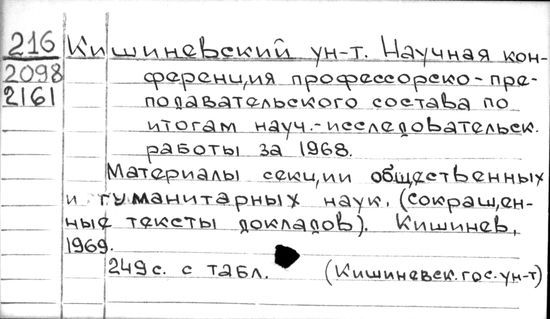 216 Кишиневский ун-т. Научная кон-
2098 ференция профессорско-пре-
2161 подавательского состава по
итогам науч.-исследовательск.
работы за 1968.
Материалы секции общественных
и гуманитарных наук. (сокращен-
ные тексты докладов). Кишинев,
1969.
249с. с табл. (Кишиневск.гос.ун-т)